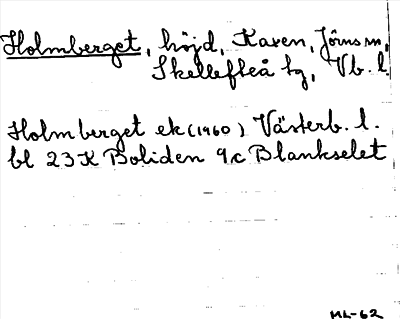 Holmberget, höjd, Kaxen, Jörns sn,
Skellefteå tg, Vb. l.
Holmberget ek (1960) Västerb. l.
bl 23K Boliden 9c Blankselet
ML-62